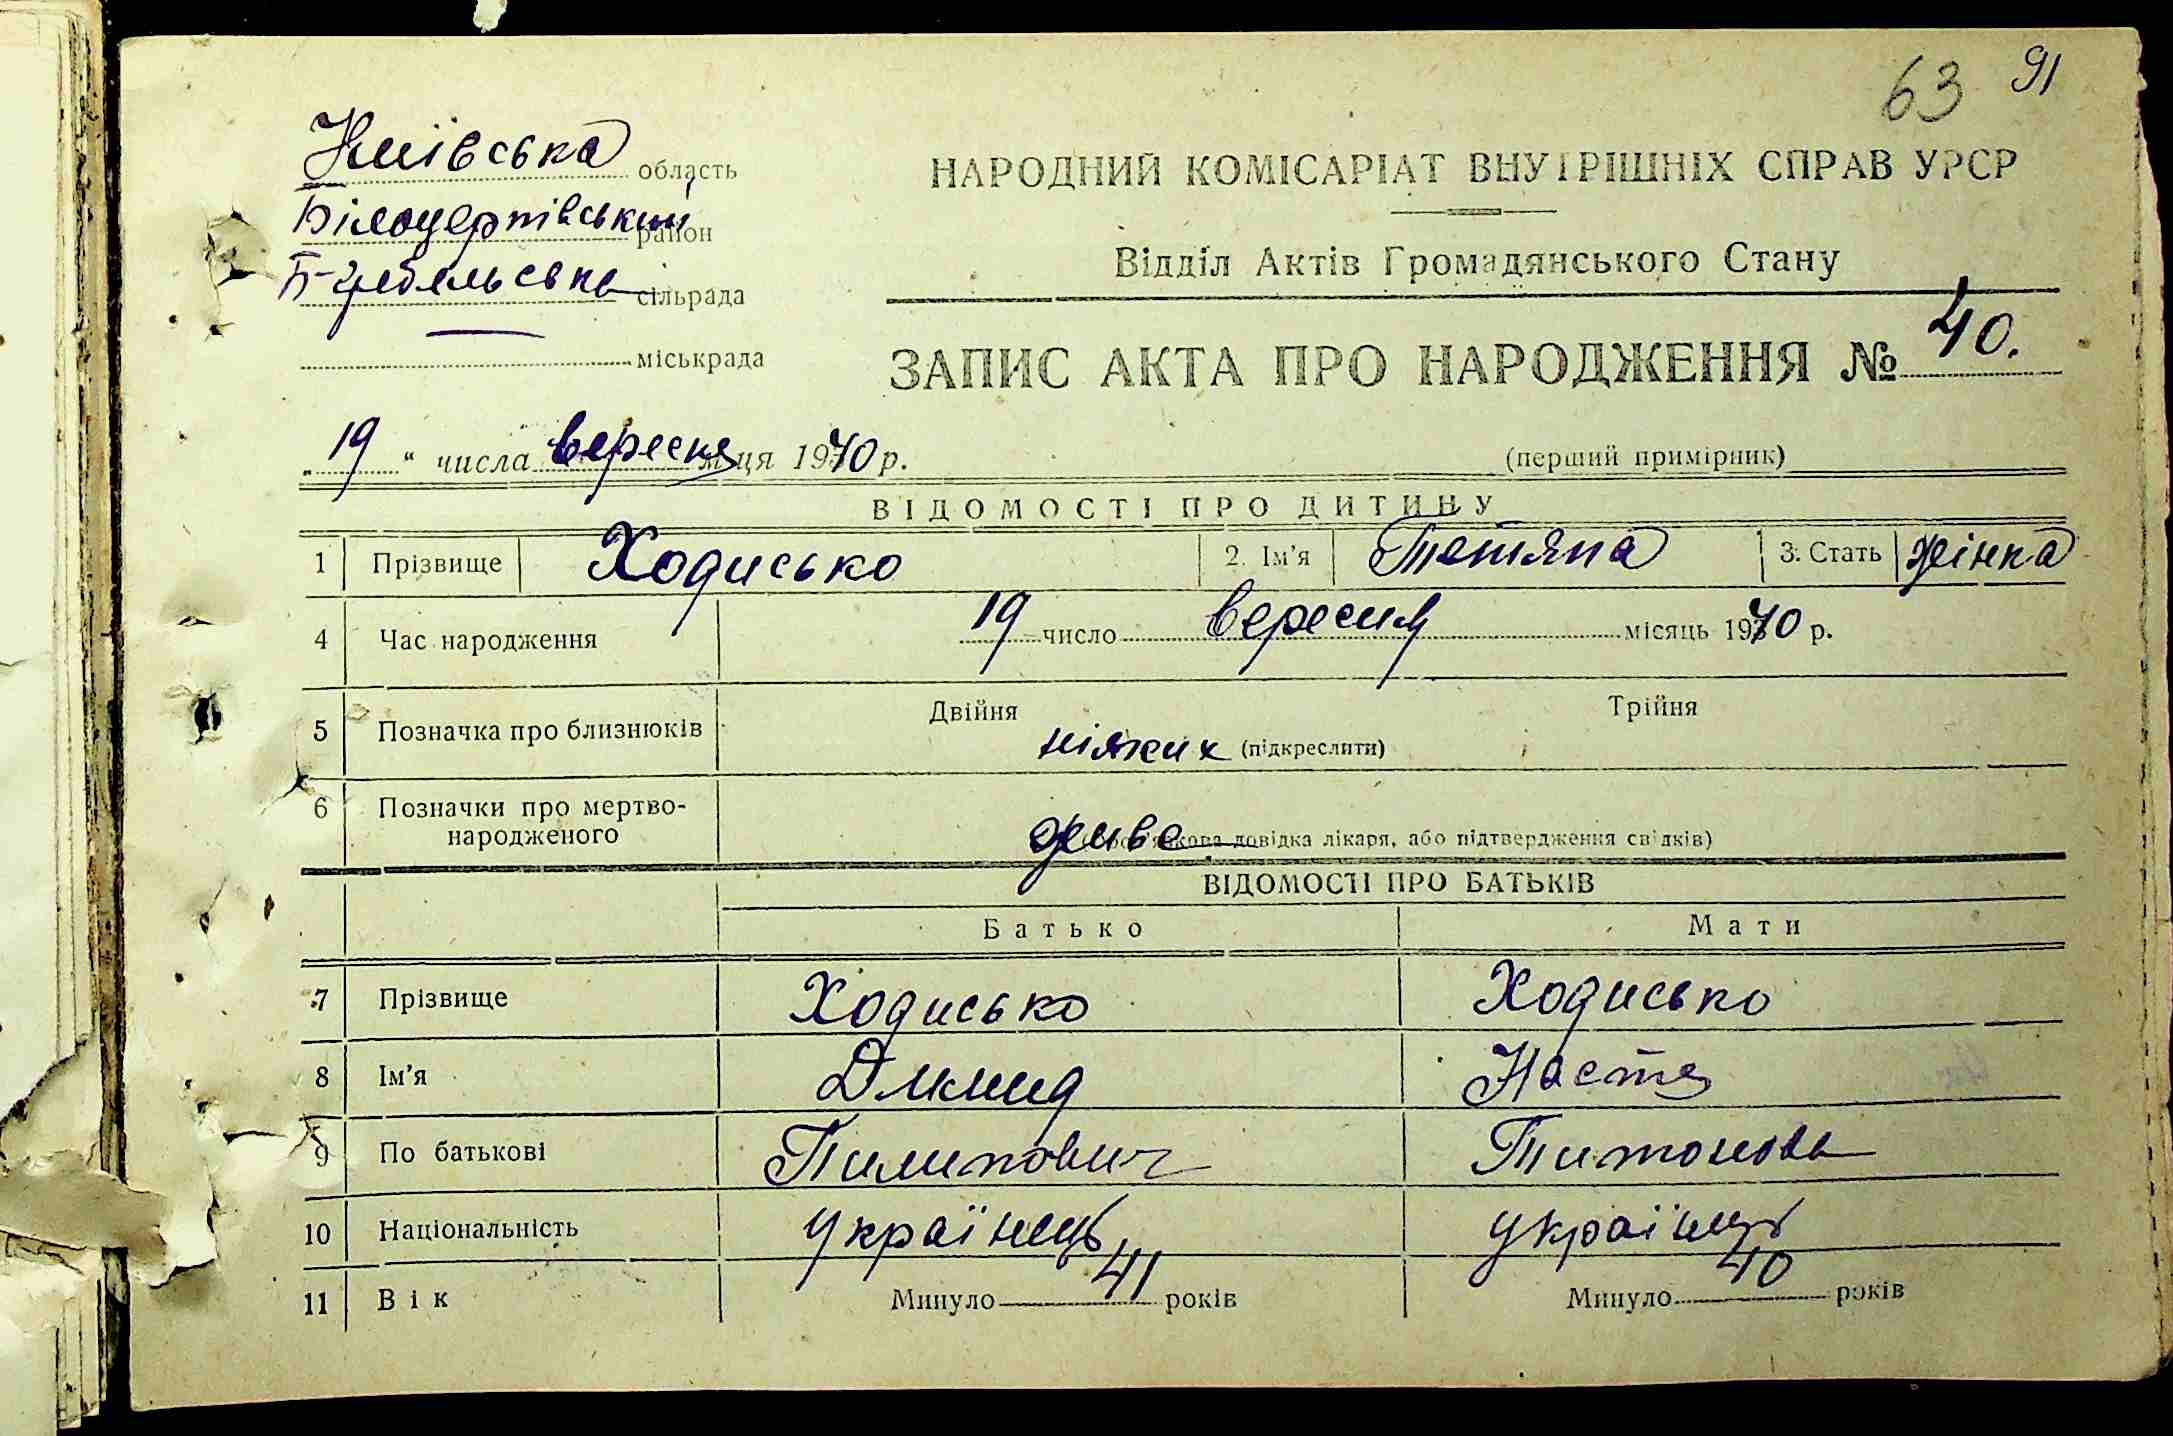 63 91
Київська область
Білоцерківський район
Б-Гребельська сільрада
міськрада
НАРОДНИЙ КОМІСАРІАТ ВНУТРІШНІХ СПРАВ УРСР
Відділ Актів Громадянського Стану
ЗАПИС АКТА ПРО НАРОДЖЕННЯ № 40.
„19“ числа вересня м-ця 1940 р.
(перший примірник)
ВІДОМОСТІ ПРО ДИТИНУ
1 Прізвище Ходисько 2. Ім'я Тетяна 3. Стать жінка
4 Час народження 19 число вересня місяць 1940 р.
5 Позначка про близнюків Двійня Трійня
ніяких (підкреслити)
6 Позначки про мертво-
народженого живе (обов'язкова довідка лікаря, або підтвердження свідків)
ВІДОМОСТІ ПРО БАТЬКІВ
Батько Мати
7 Прізвище Ходисько Ходисько
8 Ім'я Дмид Настя
9 По батькові Пилипович Титонова
10 Національність українець українць
11 Вік Минуло 41 років Минуло 40 років